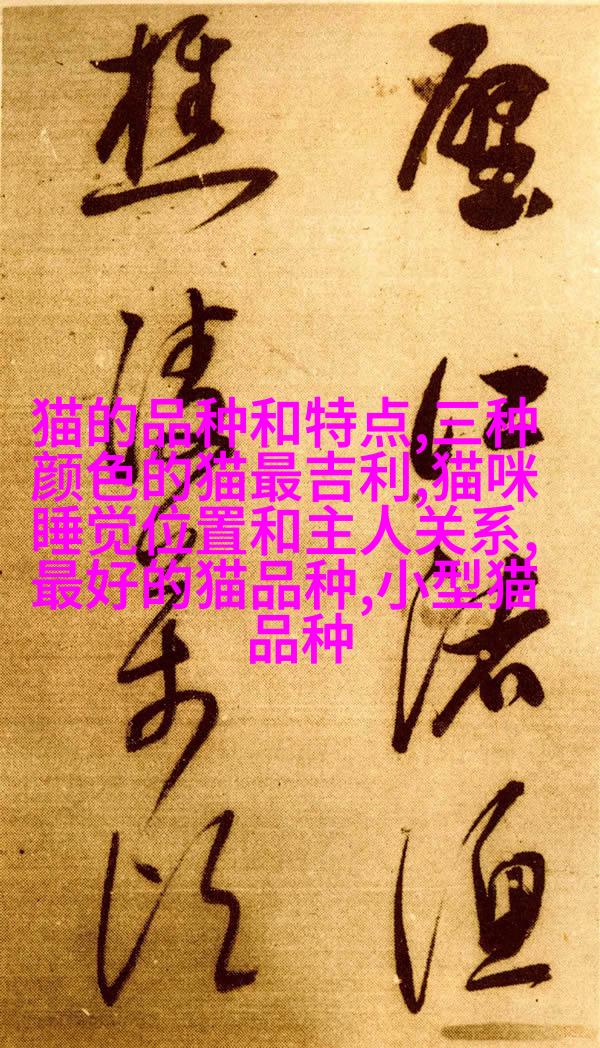 江渚漁
樵
猫的品种和特点,三种
颜色的猫最吉利,猫咪
睡觉位置和主人关系,
最好的猫品种,小型猫
品种